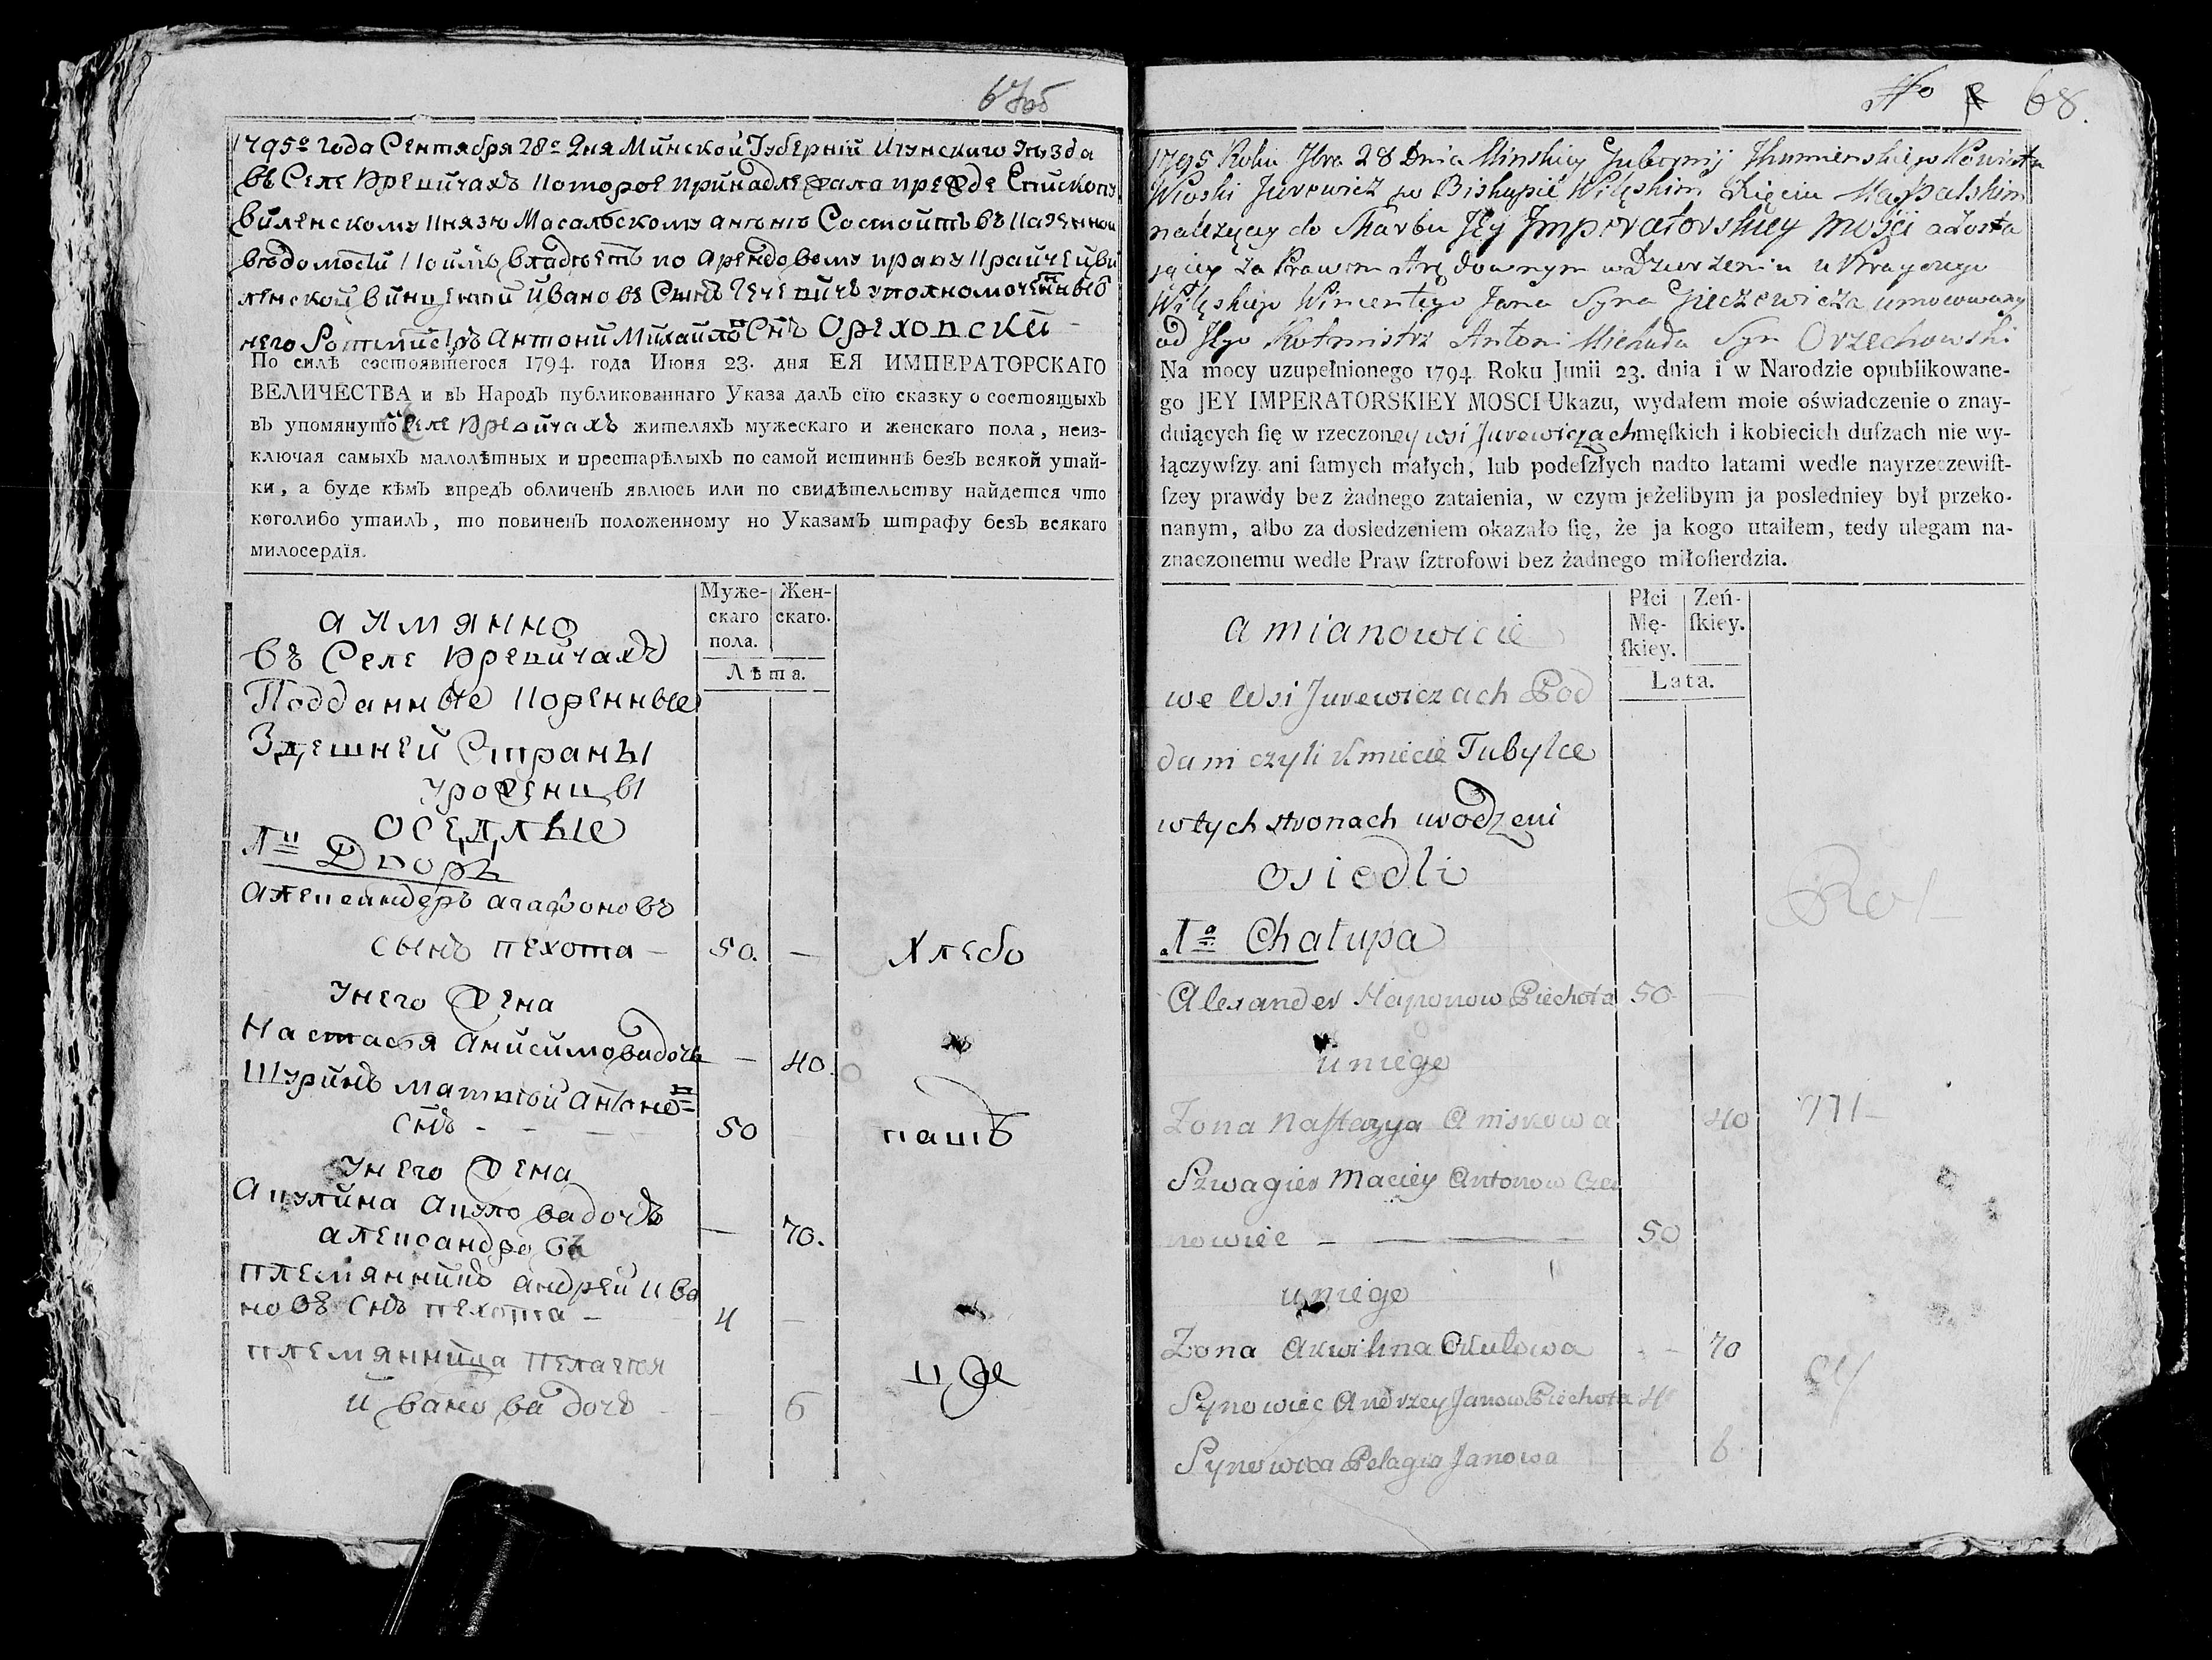 67об
1795º года Сентября 28º Дня Минской Губерній Игуменскаго Уъзда
въ Селе Юревичахъ Которое принадлежала прежде Епископу
Виленскому Князю Масальскому а нынъ Состоитъ въ Казенной
въдомостй Коимъ владъетъ по Арендовому праву Крайчей ви
ленской Винцентий Ивановъ Сынъ Гечевичъ уполномоченный
него Ротмистръ Антони Михайловъ Снъ Ореховски
По силѣ состоявшегося 1794. года Июня 23. дня ЕЯ ИМПЕРАТОРСКАГО
ВЕЛИЧЕСТВА и въ Народъ публикованнаго Указа далъ сїю сказку о состоящыхъ
въ упомянутой Селе Юревичахъ жителяхъ мужескаго и женскаго пола, неиз-
ключая самыхъ малолѣтныхъ и престарѣлыхъ по самой истиннѣ безъ всякой утай-
ки, а буде кѣмъ впредъ обличенъ явлюсь или по свидѣтельству найдется что
коголибо утаилъ, то повиненъ положенному по Указамъ штрафу безъ всякаго
милосердїя.
Муже-
скаго
пола.
Жен-
скаго.
Лѣта.
а имянно
въ Селе Юревичахъ
Подданные Коренные
Здешней Страны
уроженцы
оседлые
1й Дворъ
Александеръ Агафоновъ
сынъ пехота — 50. —
Хлебо
у него жена
Настася Анисимова дочь — 40.
Шуринъ Матвей Антоно
снъ - - — 50
пашъ
у него жена
Акулина Акуло ва дочь — 70.
Александровъ
племянникъ Андрей Ива
новъ снъ пехота — 4 —
племянница Пелагея
Ивано ва дочь — — 6
№ 68.
1795 Roku 7bra 28 Dnia Minskiey Gubernij Ihumienskiego Powiatu
Wioski Jurewicz po Biskupie Wileskim Xięciu Massalskim
należący do Skarbu Jey Imperatorskiey Mości a zosta
jącey za Prawem Arędownym w Dzierżeniu u Krayczego
Wileskiego Wincentego Jana Syna Gieczewicza umocowany
od Jego Rotmistrz Antoni Michała Syn Orzechowski
Na mocy uzupełnionego 1794 Roku Junii 23. dnia i w Narodzie opublikowane-
go JEY IMPERATORSKIEY MOSCI Ukazu, wydałem moie oświadczenie o znay-
duiących ſię w rzeczoney wsi Jurewiczach męſkich i kobiecich duſzach nie wy-
łączywſzy ani ſamych małych, lub podeſzłych nadto latami wedle nayrzeczewiſt-
ſzey prawdy bez żadnego zataienia, w czym jeżelibym ja posledniey był przeko-
nanym, albo za dosledzeniem okazało ſię, że ja kogo utaiłem, tedy ulegam na-
znaczonemu wedle Praw ſztrofowi bez żadnego miłoſierdzia.
Płci
Mę-
ſkiey.
Zeń-
ſkiey.
Lata.
a mianowicie
we Wsi Jurewiczach Pod
dani czyli Kmiecie Tubylce
w tych stronach urodzeni
osiedli
1a Chałupa
Alexander Haponow Piechota 50 —
u niego
Zona Nastazya Aniskowa 40
Szwagier Maciey Antonow
nowiec — — — 50
u niego
Zona Akwilina Okulowa - - 70
Synowiec Andrzey Janow Piechota 4
Synowica Pelagia Janowa 6